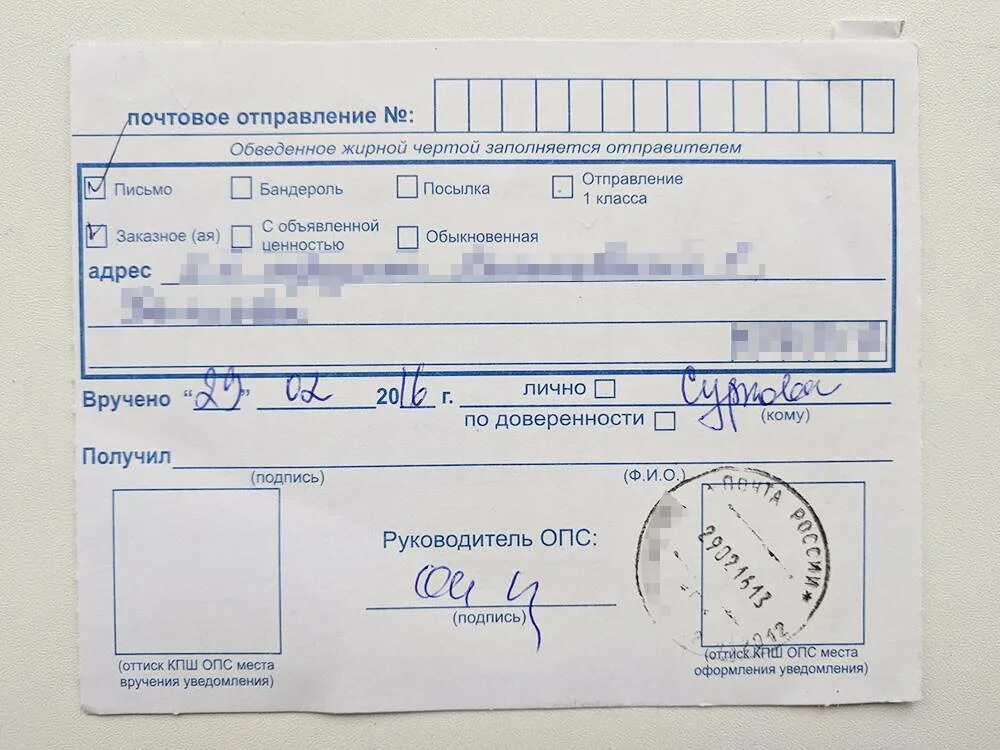 почтовое отправление №:
Обведенное жирной чертой заполняется отправителем
Письмо Бандероль Посылка Отправление 1 класса
Заказное (ая) С объявленной ценностью Обыкновенная
адрес
Вручено “29” 02 2016 г. лично
по доверенности (кому)
Получил
(подпись) (Ф.И.О.)
ПОЧТА РОССИИ
2902161З
Руководитель ОПС:
(подпись)
(оттиск КПШ ОПС места вручения уведомления)
(оттиск КПШ ОПС места оформления уведомления)